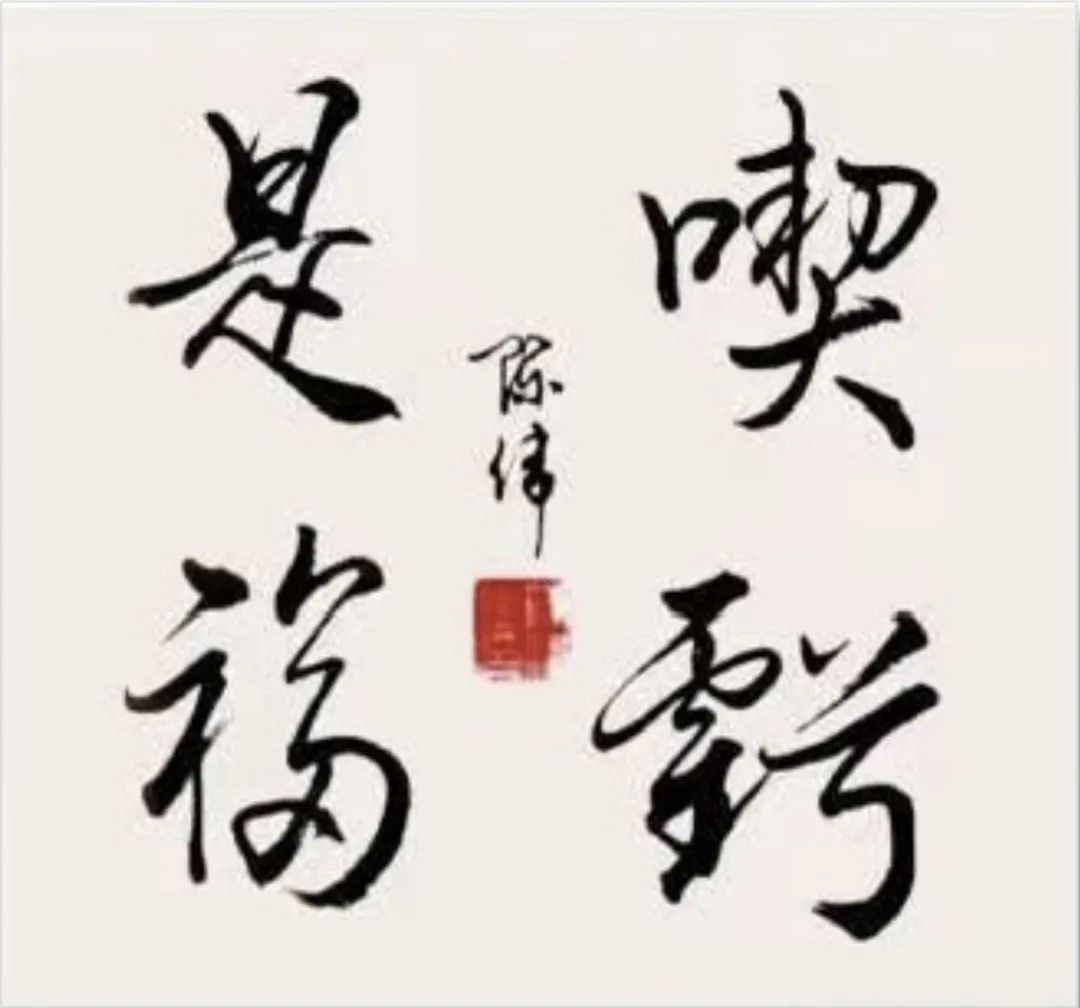 喫虧
是福
陈伟